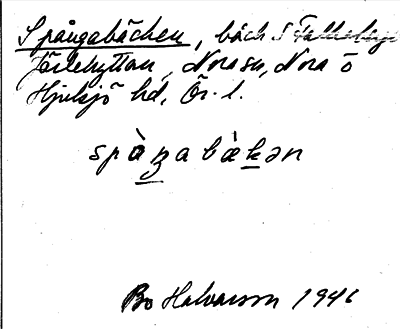 Spångabäcken, bäck S
Järlehyttan, Nora sn, Nora o
Hjulsjö hd, Ör. l.
spåŋabäkən
Bo Halvarson 1946